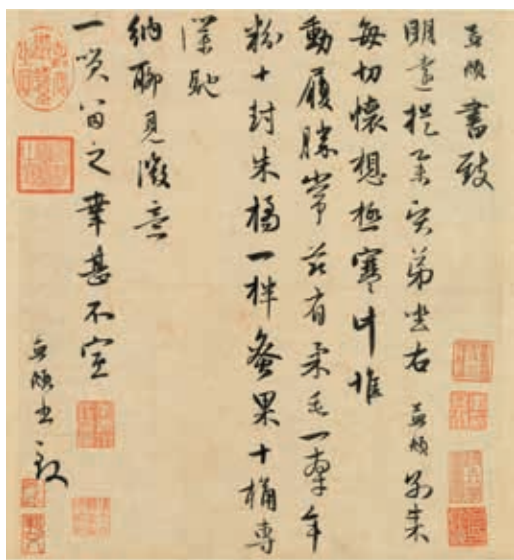 孟頫書致
明遠提舉賢弟坐右 孟頫別來
每切懷想極寒計惟
動履勝常茲有柔毛一牽年
粉十封朱橘一柈果十桶專
僕馳
納聊見微意
一笑留之幸甚不宣
孟頫